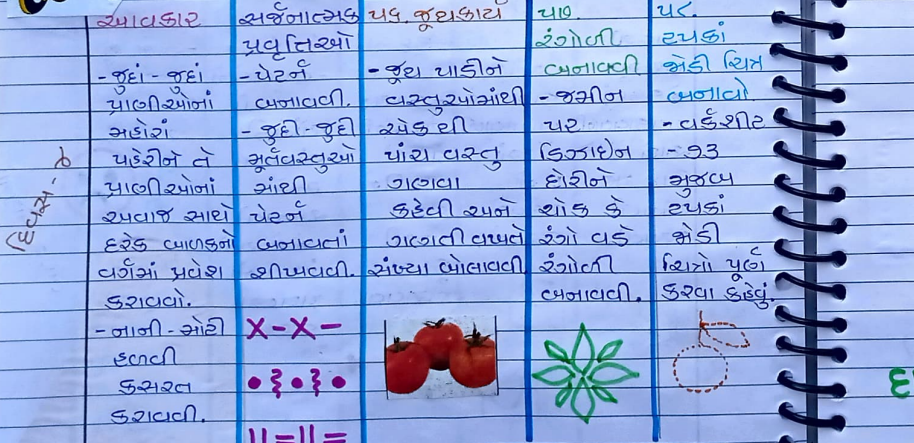 આવકાર
-જુદાં-જુદાં
પ્રાણીઓનાં
મહોરાં
પહેરીને તે
પ્રાણીઓનાં
અવાજ સાથે
દરેક બાળકનો
વર્ગમાં પ્રવેશ
કરાવવો.
-નાની-મોટી
હળવી
કસરત
કરાવવી.
સર્જનાત્મક
પ્રવૃત્તિઓ
-પેટર્ન
બનાવવી.
-જુદી-જુદી
મૂર્તવસ્તુઓ
માંથી
પેટર્ન
બનાવતાં
શીખવવી.
x-x-
૫૬. જૂથકાર્ય
-જૂથ પાડીને
વસ્તુઓમાંથી
એક થી
પાંચ વસ્તુ
ગણવા
કહેવી અને
ગણતી વખતે
સંખ્યા બોલાવવી
૫૭.
રંગોળી
બનાવવી
-જમીન
પર
ડિઝાઇન
દોરીને
ચોક કે
રંગો વડે
રંગોળી
બનાવવી.
૫૮.
ટપકાં
જોડી ચિત્ર
બનાવો
-વર્કશીટ
-૭૩
મુજબ
ટપકાં
જોડી
ચિત્રો પૂર્ણ
કરવા કહેવું.